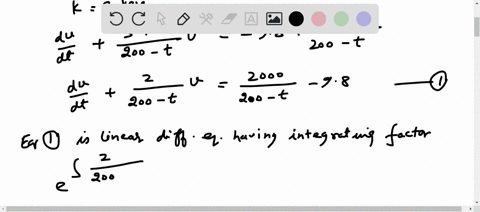 K =
dv/dt + /200-t v = -9.8 + /200-t
dv/dt + 2/200-t v = 2000/200-t - 9.8 —— ①
Eq ① is linear diff. eq. having integrating factor
e^∫ 2/200